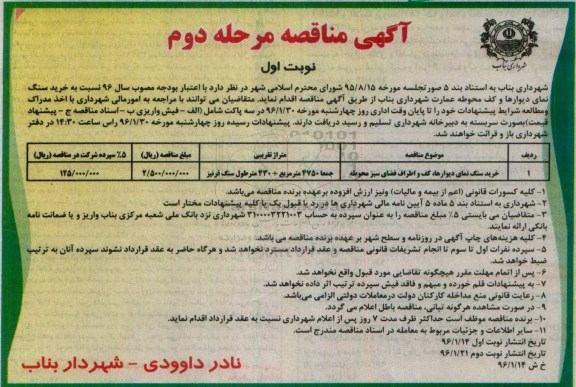 آگهی مناقصه مرحله دوم
نوبت اول
شهرداری بناب
شهرداری بناب به استناد بند ۵ صورتجلسه مورخه ۹۵/۸/۱۵ شورای محترم اسلامی شهر در نظر دارد با اعتبار بودجه مصوب سال ۹۶ نسبت به خرید سنگ
نمای دیوارها و کف محوطه عمارت شهرداری بناب از طریق آگهی مناقصه اقدام نماید. متقاضیان می توانند با مراجعه به امورمالی شهرداری با اخذ مدراک
ومطالعه شرایط پیشنهادات خود را تا پایان وقت اداری روز چهارشنبه مورخه ۹۶/۱/۳۰ در سه پاکت شامل (الف - فیش واریزی ب - اسناد مناقصه ج - پیشنهاد
قیمت)بصورت سربسته به دبیرخانه شهرداری تسلیم و رسید دریافت دارند. پیشنهادات رسیده روز چهارشنبه مورخه ۹۶/۱/۳۰ راس ساعت ۱۴:۳۰ در دفتر
شهرداری باز و قرائت خواهند شد.
ردیف موضوع مناقصه متراژ تقریبی مبلغ مناقصه (ریال) ۵٪ سپرده شرکت در مناقصه (ریال)
۱ خرید سنگ نمای دیوارها، کف و اطراف فضای سبز محوطه جمعا ۴۷۵۰ مترمربع + ۴۳۰ مترطول سنگ قرنیز ۲/۵۰۰/۰۰۰/۰۰۰ ۱۲۵/۰۰۰/۰۰۰
۱- کلیه کسورات قانونی (اعم از بیمه و مالیات) ونیز ارزش افزوده برعهده برنده مناقصه می‌باشد.
۲- شهرداری به استناد بند ۵ ماده ۵ آیین نامه مالی شهرداری ها در رد یا قبول یک یا کلیه پیشنهادات مختار است
۳- متقاضیان می بایستی ۵٪ مبلغ مناقصه را به عنوان سپرده به حساب ۳۱۰۰۰۰۳۲۲۱۰۰۳ شهرداری نزد بانک ملی شعبه مرکزی بناب واریز و یا ضمانت نامه
بانکی ارائه نمایند.
۴- کلیه هزینه‌های چاپ آگهی در روزنامه و سطح شهر بر عهده برنده مناقصه می باشد.
۵- سپرده نفرات اول تا سوم تا انجام تشریفات قانونی مناقصه و عقد قرارداد مسترد نخواهد شد و هرگاه حاضر به عقد قرارداد نشوند سپرده آنان به ترتیب
ضبط خواهد شد.
۶- پس از اتمام مهلت مقرر هیچگونه تقاضایی مورد قبول واقع نخواهد شد.
۷- به پیشنهادات قلم خورده و مبهم و فاقد فیش سپرده ترتیب اثر داده نخواهد شد.
۸- رعایت قانونی منع مداخله کارکنان دولت درمعاملات دولتی الزامی می‌باشد.
۹- در صورت مشاهده هرگونه تبانی، مناقصه باطل اعلام می گردد.
۱۰- برنده مناقصه موظف است حداکثر ظرف مدت ۷ روز پس از اعلام شهرداری نسبت به عقد قرارداد اقدام نماید.
۱۱- سایر اطلاعات و جزئیات مربوط به معامله در اسناد مناقصه مندرج است.
تاریخ انتشار نوبت اول ۹۶/۱/۱۴
تاریخ انتشار نوبت دوم ۹۶/۱/۲۱
خ ش ۹۶/۱/۱۴
نادر داوودی - شهردار بناب